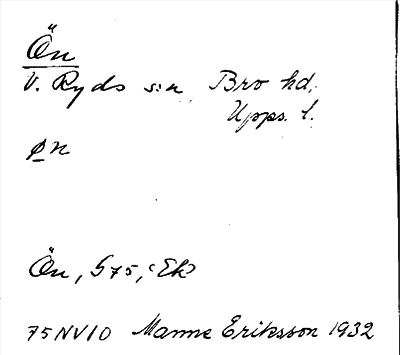 Ön
V. Ryds s:n Bro hd,
Upps. l.
ø̲n
Ön, G75, Ek
75NV10 Manne Eriksson 1932